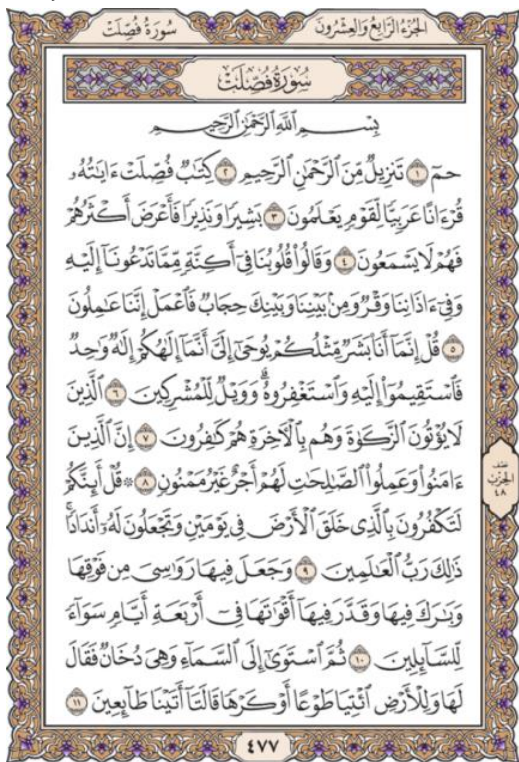 الجُزْءُ الرَّابِعُ وَالعِشْرُونَ سُورَةُ فُصِّلَتْ
سُورَةُ فُصِّلَتْ
بِسْمِ ٱللَّهِ ٱلرَّحْمَٰنِ ٱلرَّحِيمِ
حمٓ ١ تَنزِيلٌ مِّنَ ٱلرَّحْمَٰنِ ٱلرَّحِيمِ ٢ كِتَٰبٌ فُصِّلَتْ ءَايَٰتُهُۥ
قُرْءَانًا عَرَبِيًّا لِّقَوْمٍ يَعْلَمُونَ ٣ بَشِيرًا وَنَذِيرًا فَأَعْرَضَ أَكْثَرُهُمْ
فَهُمْ لَا يَسْمَعُونَ ٤ وَقَالُوا۟ قُلُوبُنَا فِىٓ أَكِنَّةٍ مِّمَّا تَدْعُونَآ إِلَيْهِ
وَفِىٓ ءَاذَانِنَا وَقْرٌ وَمِنۢ بَيْنِنَا وَبَيْنِكَ حِجَابٌ فَٱعْمَلْ إِنَّنَا عَٰمِلُونَ
٥ قُلْ إِنَّمَآ أَنَا۠ بَشَرٌ مِّثْلُكُمْ يُوحَىٰٓ إِلَىَّ أَنَّمَآ إِلَٰهُكُمْ إِلَٰهٌ وَٰحِدٌ
فَٱسْتَقِيمُوٓا۟ إِلَيْهِ وَٱسْتَغْفِرُوهُ ۗ وَوَيْلٌ لِّلْمُشْرِكِينَ ٦ ٱلَّذِينَ
لَا يُؤْتُونَ ٱلزَّكَوٰةَ وَهُم بِٱلْءَاخِرَةِ هُمْ كَٰفِرُونَ ٧ إِنَّ ٱلَّذِينَ
ءَامَنُوا۟ وَعَمِلُوا۟ ٱلصَّٰلِحَٰتِ لَهُمْ أَجْرٌ غَيْرُ مَمْنُونٍ ٨ ۞ قُلْ أَئِنَّكُمْ
لَتَكْفُرُونَ بِٱلَّذِى خَلَقَ ٱلْأَرْضَ فِى يَوْمَيْنِ وَتَجْعَلُونَ لَهُۥٓ أَندَادًا ۚ
ذَٰلِكَ رَبُّ ٱلْعَٰلَمِينَ ٩ وَجَعَلَ فِيهَا رَوَٰسِىَ مِن فَوْقِهَا
وَبَٰرَكَ فِيهَا وَقَدَّرَ فِيهَآ أَقْوَٰتَهَا فِىٓ أَرْبَعَةِ أَيَّامٍ سَوَآءً
لِّلسَّآئِلِينَ ١٠ ثُمَّ ٱسْتَوَىٰٓ إِلَى ٱلسَّمَآءِ وَهِىَ دُخَانٌ فَقَالَ
لَهَا وَلِلْأَرْضِ ٱئْتِيَا طَوْعًا أَوْ كَرْهًا قَالَتَآ أَتَيْنَا طَآئِعِينَ ١١
نصف
الحزب
٤٨
٤٧٧